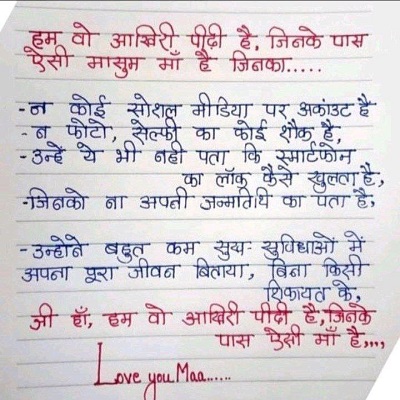 हम वो आखिरी पीढ़ी है, जिनके पास
ऐसी मासुम माँ है जिनका.....
-न कोई सोशल मीडिया पर अकांउट है
-न फोटो, सेल्फी का कोई शौक है,
-उन्हें ये भी नही पता कि स्मार्टफोन
का लॉक कैसे खुलता है,
-जिनको ना अपनी जन्मतिथि का पता है,
-उन्होंने बहुत कम सुख- सुविधाओं में
अपना पूरा जीवन बिताया, बिना किसी
शिकायत के,
जी हाँ, हम वो आखिरी पीढ़ी है, जिनके
पास ऐसी माँ है,..,
Love you Maa......